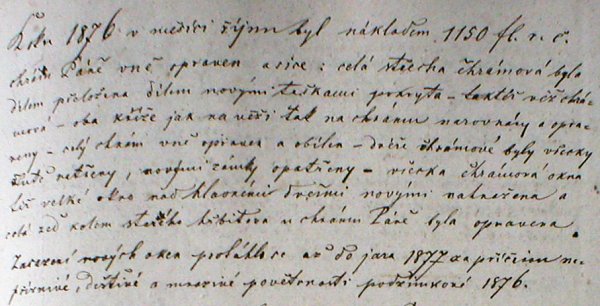 Léta 1876 v měsíci říjnu byl nákladem 1150 fl. r. č.
chrám Páně vně opraven a sice: celá střecha chrámová byla
dílem přeložena dílem novými taškami pokryta – taktéž věž chrá-
mová – oba kříže jak na věži tak na chrámu narovnány a opra-
veny – celý chrám vně opraven a obílen – dvéře chrámové byly všecky
žlutě natřeny, novými zámky opatřeny – všecka chrámová okna
též velké okno nad hlavními dveřmi novými nahražena a
celá zeď kolem starého hřbitova u chrámu Páně byla opravena.
Zasazení nových oken protáhlo se až do jara 1877 za příčinou ne-
příznivé, deštivé a mrazivé povětrnosti podzimkové 1876.